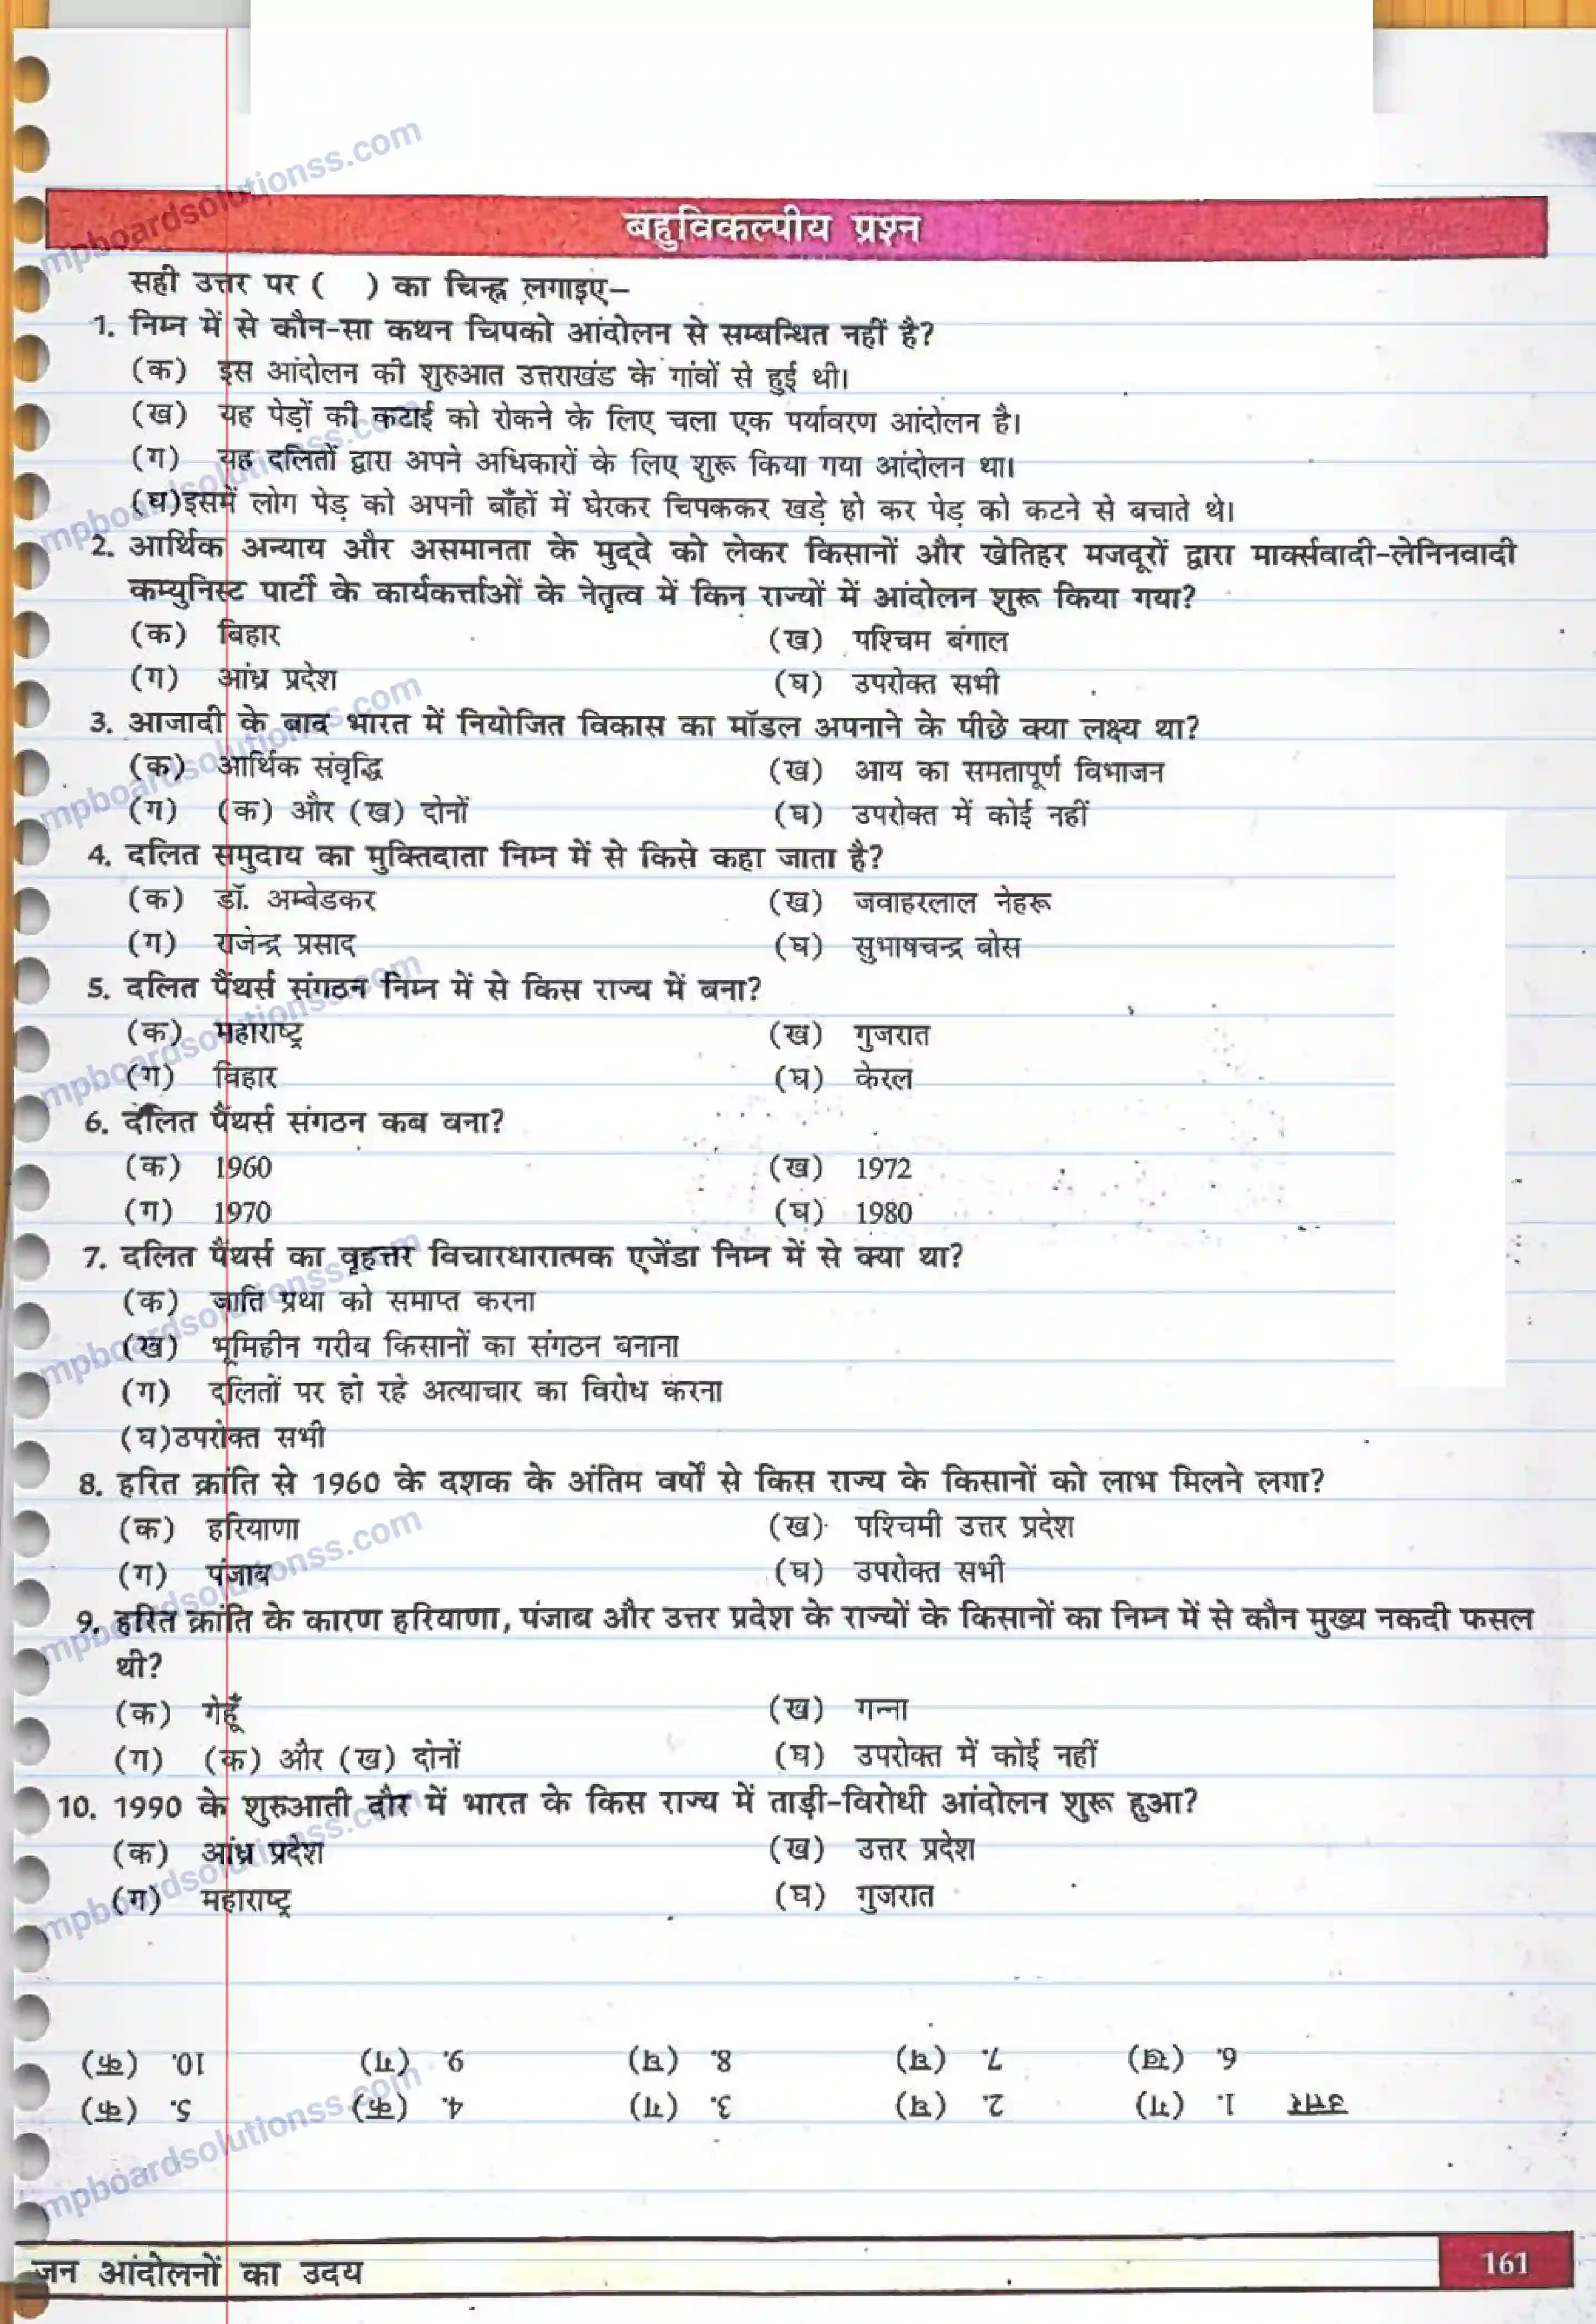 बहुविकल्पीय प्रश्न
सही उत्तर पर ( ) का चिन्ह लगाइए–
1. निम्न में से कौन-सा कथन चिपको आंदोलन से सम्बन्धित नहीं है?
(क) इस आंदोलन की शुरुआत उत्तराखंड के गांवों से हुई थी।
(ख) यह पेड़ों की कटाई को रोकने के लिए चला एक पर्यावरण आंदोलन है।
(ग) यह दलितों द्वारा अपने अधिकारों के लिए शुरू किया गया आंदोलन था।
(घ)इसमें लोग पेड़ को अपनी बाँहों में घेरकर चिपककर खड़े हो कर पेड़ को कटने से बचाते थे।
2. आर्थिक अन्याय और असमानता के मुद्दे को लेकर किसानों और खेतिहर मजदूरों द्वारा मार्क्सवादी-लेनिनवादी
कम्युनिस्ट पार्टी के कार्यकर्त्ताओं के नेतृत्व में किन राज्यों में आंदोलन शुरू किया गया?
(क) बिहार (ख) पश्चिम बंगाल
(ग) आंध्र प्रदेश (घ) उपरोक्त सभी
3. आजादी के बाद भारत में नियोजित विकास का मॉडल अपनाने के पीछे क्या लक्ष्य था?
(क) आर्थिक संवृद्धि (ख) आय का समतापूर्ण विभाजन
(ग) (क) और (ख) दोनों (घ) उपरोक्त में कोई नहीं
4. दलित समुदाय का मुक्तिदाता निम्न में से किसे कहा जाता है?
(क) डॉ. अम्बेडकर (ख) जवाहरलाल नेहरू
(ग) राजेन्द्र प्रसाद (घ) सुभाषचन्द्र बोस
5. दलित पैंथर्स संगठन निम्न में से किस राज्य में बना?
(क) महाराष्ट्र (ख) गुजरात
(ग) बिहार (घ) केरल
6. दलित पैंथर्स संगठन कब बना?
(क) 1960 (ख) 1972
(ग) 1970 (घ) 1980
7. दलित पैंथर्स का वृहत्तर विचारधारात्मक एजेंडा निम्न में से क्या था?
(क) जाति प्रथा को समाप्त करना
(ख) भूमिहीन गरीब किसानों का संगठन बनाना
(ग) दलितों पर हो रहे अत्याचार का विरोध करना
(घ)उपरोक्त सभी
8. हरित क्रांति से 1960 के दशक के अंतिम वर्षों से किस राज्य के किसानों को लाभ मिलने लगा?
(क) हरियाणा (ख) पश्चिमी उत्तर प्रदेश
(ग) पंजाब (घ) उपरोक्त सभी
9. हरित क्रांति के कारण हरियाणा, पंजाब और उत्तर प्रदेश के राज्यों के किसानों का निम्न में से कौन मुख्य नकदी फसल
थी?
(क) गेहूँ (ख) गन्ना
(ग) (क) और (ख) दोनों (घ) उपरोक्त में कोई नहीं
10. 1990 के शुरुआती दौर में भारत के किस राज्य में ताड़ी-विरोधी आंदोलन शुरू हुआ?
(क) आंध्र प्रदेश (ख) उत्तर प्रदेश
(ग) महाराष्ट्र (घ) गुजरात
उत्तर 1. (ग) 2. (घ) 3. (ग) 4. (क) 5. (क)
6. (ख) 7. (घ) 8. (घ) 9. (ग) 10. (क)
जन आंदोलनों का उदय 161
mpboardsolutionss.com
mpboardsolutionss.com
mpboardsolutionss.com
mpboardsolutionss.com
mpboardsolutionss.com
mpboardsolutionss.com
mpboardsolutionss.com
mpboardsolutionss.com